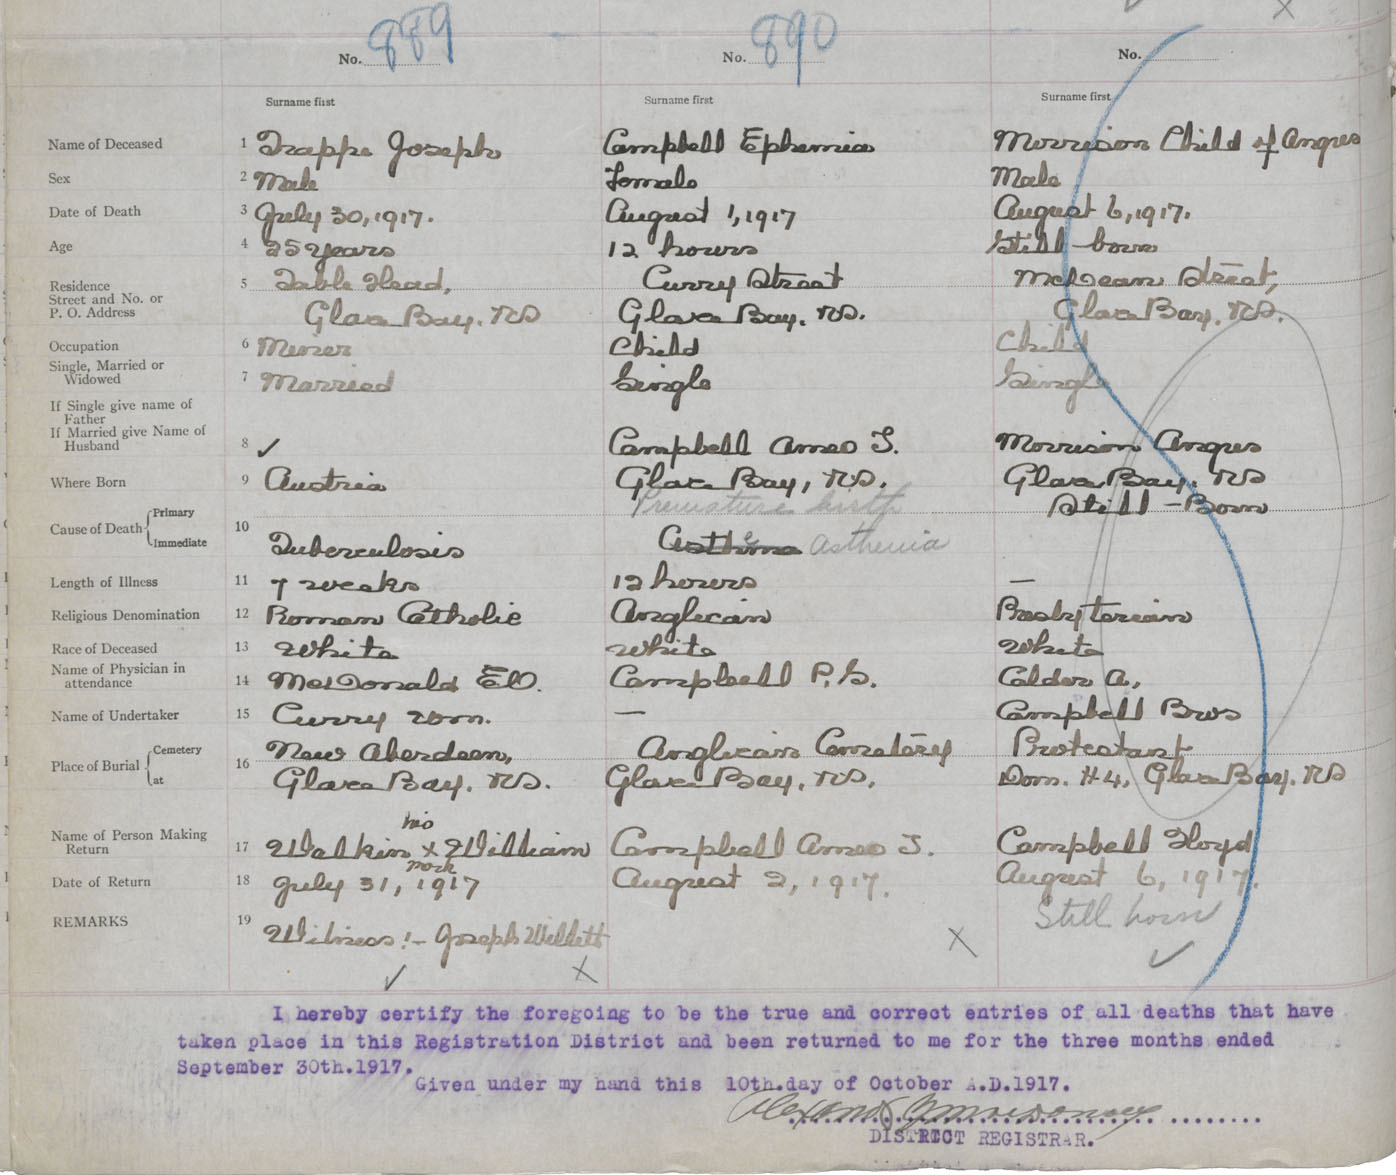 No. 889 No. 890 No.
Surname first Surname first Surname first
Name of Deceased 1 Trappe Joseph Campbell Ephemia Morrison Child of Angus
Sex 2 Male Female Male
Date of Death 3 July 30, 1917. August 1, 1917 August 6, 1917.
Age 4 25 years 12 hours Still-born
Residence 5 Table Head, Curry Street McLean Street,
Street and No. or
P. O. Address Glace Bay. NS Glace Bay. NS. Glace Bay. NS.
Occupation 6 Miner Child Child
Single, Married or
Widowed 7 Married Single Single
If Single give name of
Father
If Married give Name of
Husband 8 ✓ Campbell Amos J. Morrison Angus
Where Born 9 Austria Glace Bay, NS. Glace Bay. NS
Cause of Death Primary Premature birth Still-Born
Immediate 10 Tuberculosis Asthenia
Length of Illness 11 7 weeks 12 hours —
Religious Denomination 12 Roman Catholic Anglican Presbyterian
Race of Deceased 13 White White White
Name of Physician in
attendance 14 McDonald Campbell P.S. Calder A,
Name of Undertaker 15 Curry Wm. — Campbell Bros
Place of Burial Cemetery 16 New Aberdeen, Anglican Cemetery Protestant
at Glace Bay. NS. Glace Bay, NS. Dom. #4, Glace Bay. NS
his
Name of Person Making
Return 17 Watkin x William Campbell Amos J. Campbell Floyd
mark
Date of Return 18 July 31, 1917 August 2, 1917. August 6, 1917.
Still born
REMARKS 19 Witness:- Joseph Willett
✓ x x ✓
I hereby certify the foregoing to be the true and correct entries of all deaths that have
taken place in this Registration District and been returned to me for the three months ended
September 30th.1917.
Given under my hand this 10th.day of October A.D.1917.
DISTRICT REGISTRAR.